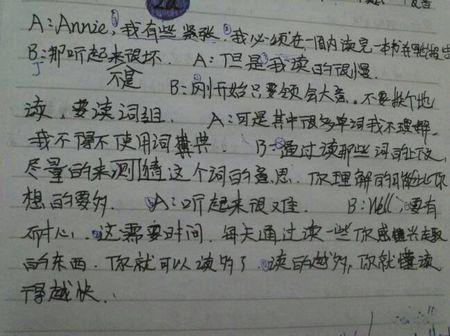 2a
A: Annie, 我有些紧张. 我必须在一周内读完一本书并做报告
B: 那听起来很坏. A: 但是我读的很慢.
不是
B: 刚开始只要领会大意. 不要逐个地
读, 要读词组. A: 可是其中很多单词我不理解.
我不得不使用词典. B: 通过读那些词的上下文
尽量的来猜这个词的意思. 你理解的可能比你
想的要多. A: 听起来很难. B: Well, 要有
耐心. 这需要时间. 每天通过读一些你感兴趣
的东西. 你就可以读的多了. 读的越多, 你就读
得越快.